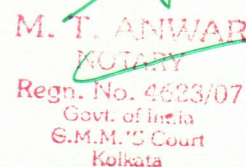 M. T. ANWAR
NOTARY
Regn. No. 4623/07
Govt. of India
C.M.M.'S Court
Kolkata